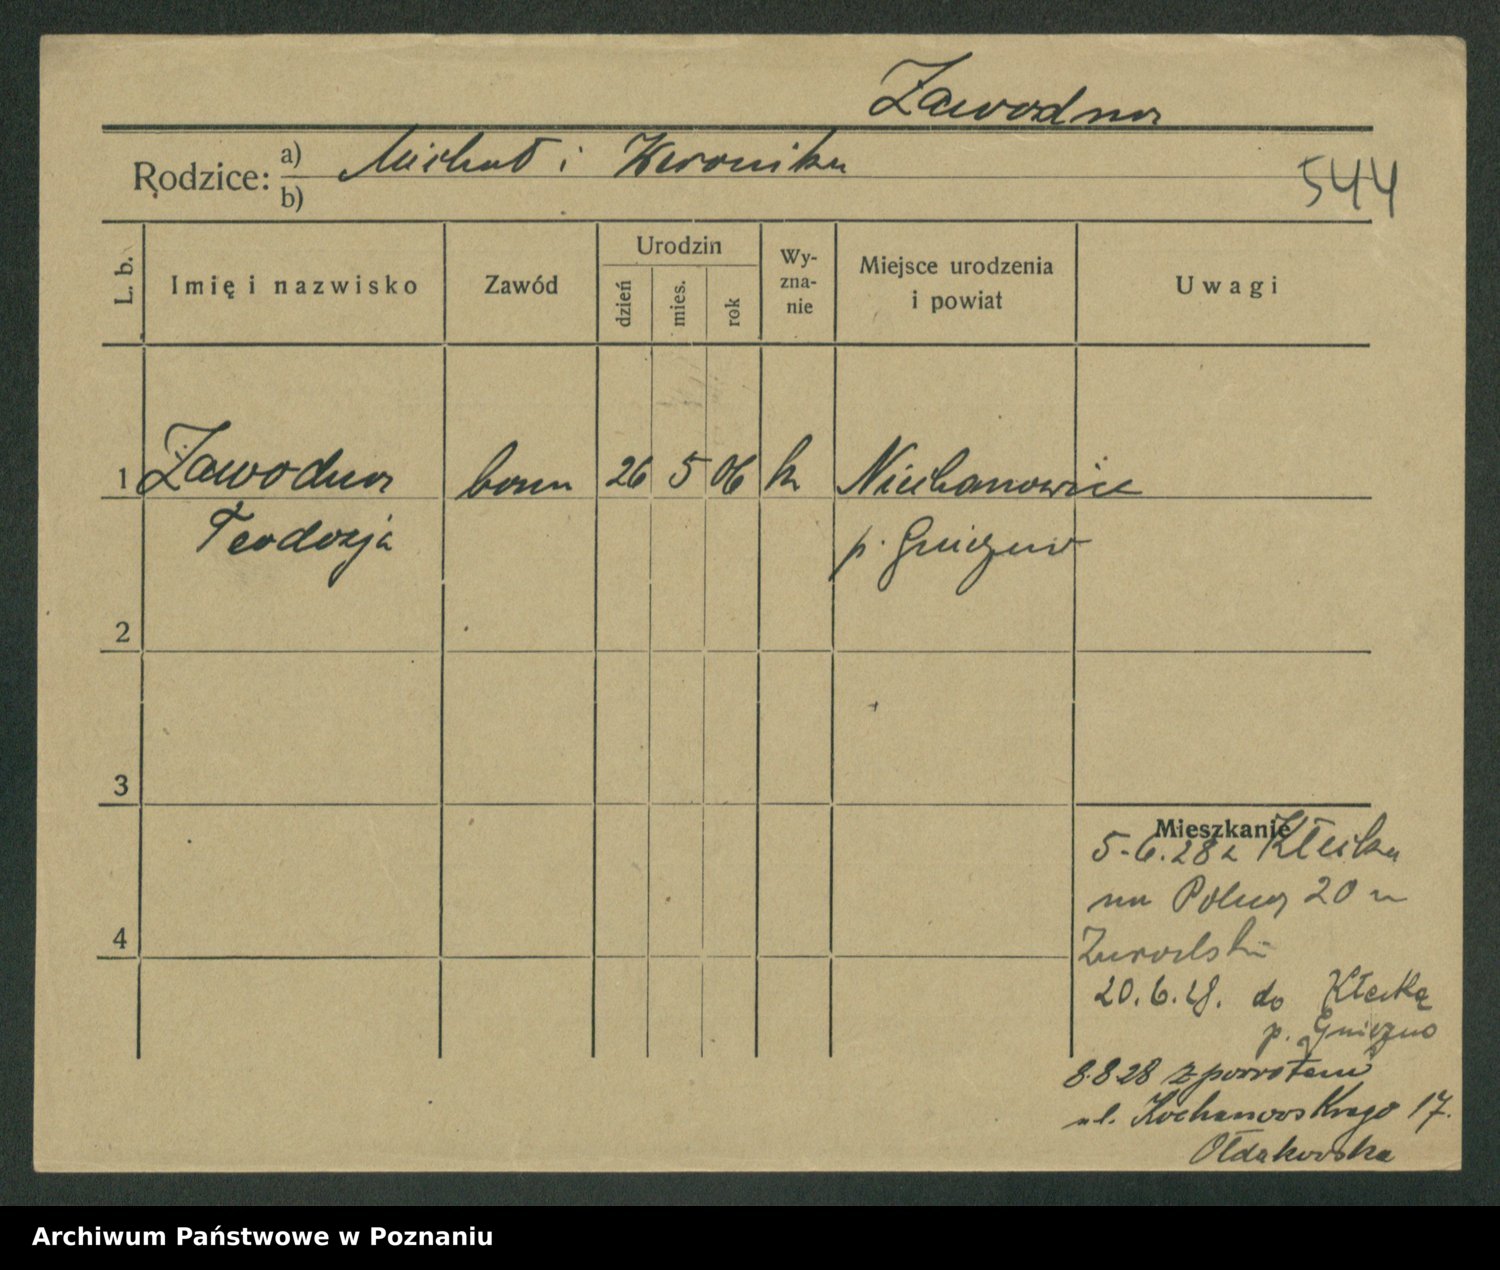 Zawodna
Rodzice: a) Michał i Weronika
b)
544
L. b. Imię i nazwisko Zawód Urodzin dzień mies. rok Wy-zna-nie Miejsce urodzenia i powiat Uwagi
1 Zawodna bona 26 5 06 k Niechanowice
Teodozja p. Gniezno
2
3
Mieszkanie
5-6.28 z Kłecka
na Polną 20 m
4
20.6.28. do Kłecka
p. Gniezno
8.8 28 z powrotem
ul. Kochanowskiego 17.
Ołdakowska
Archiwum Państwowe w Poznaniu